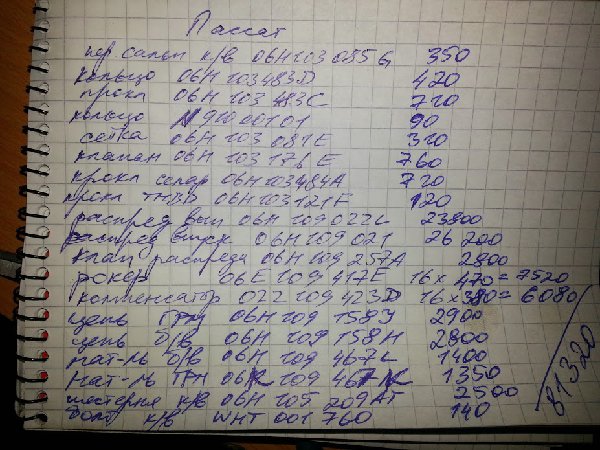 Пассат
пер сальн к/в 06H 103 085 G 350
кольцо 06H 103 483D 420
прокл 06H 103 483C 720
кольцо N 910 001 01 90
сетка 06H 103 081E 320
клапан 06H 103 176 E 760
прокл сепар 06H 103 484A 720
прокл ТНВД 06H 103 121F 120
распред вып 06H 109 022L 23800
распред впуск 06H 109 021 26 200
клап распреда 06H 109 257A 2800
рокер 06E 109 417E 16 x 470 = 7520
компенсатор 022 109 423D 16 x 380 = 6080
цепь ГРМ 06H 109 158J 2900
цепь б/в 06H 109 158H 2800
нат-ль б/в 06H 109 467L 1400
нат-ль ГРМ 06K 109 467K 1350
шестерня к/в 06H 105 209AT 2500
болт к/в WHT 001 760 140
81320